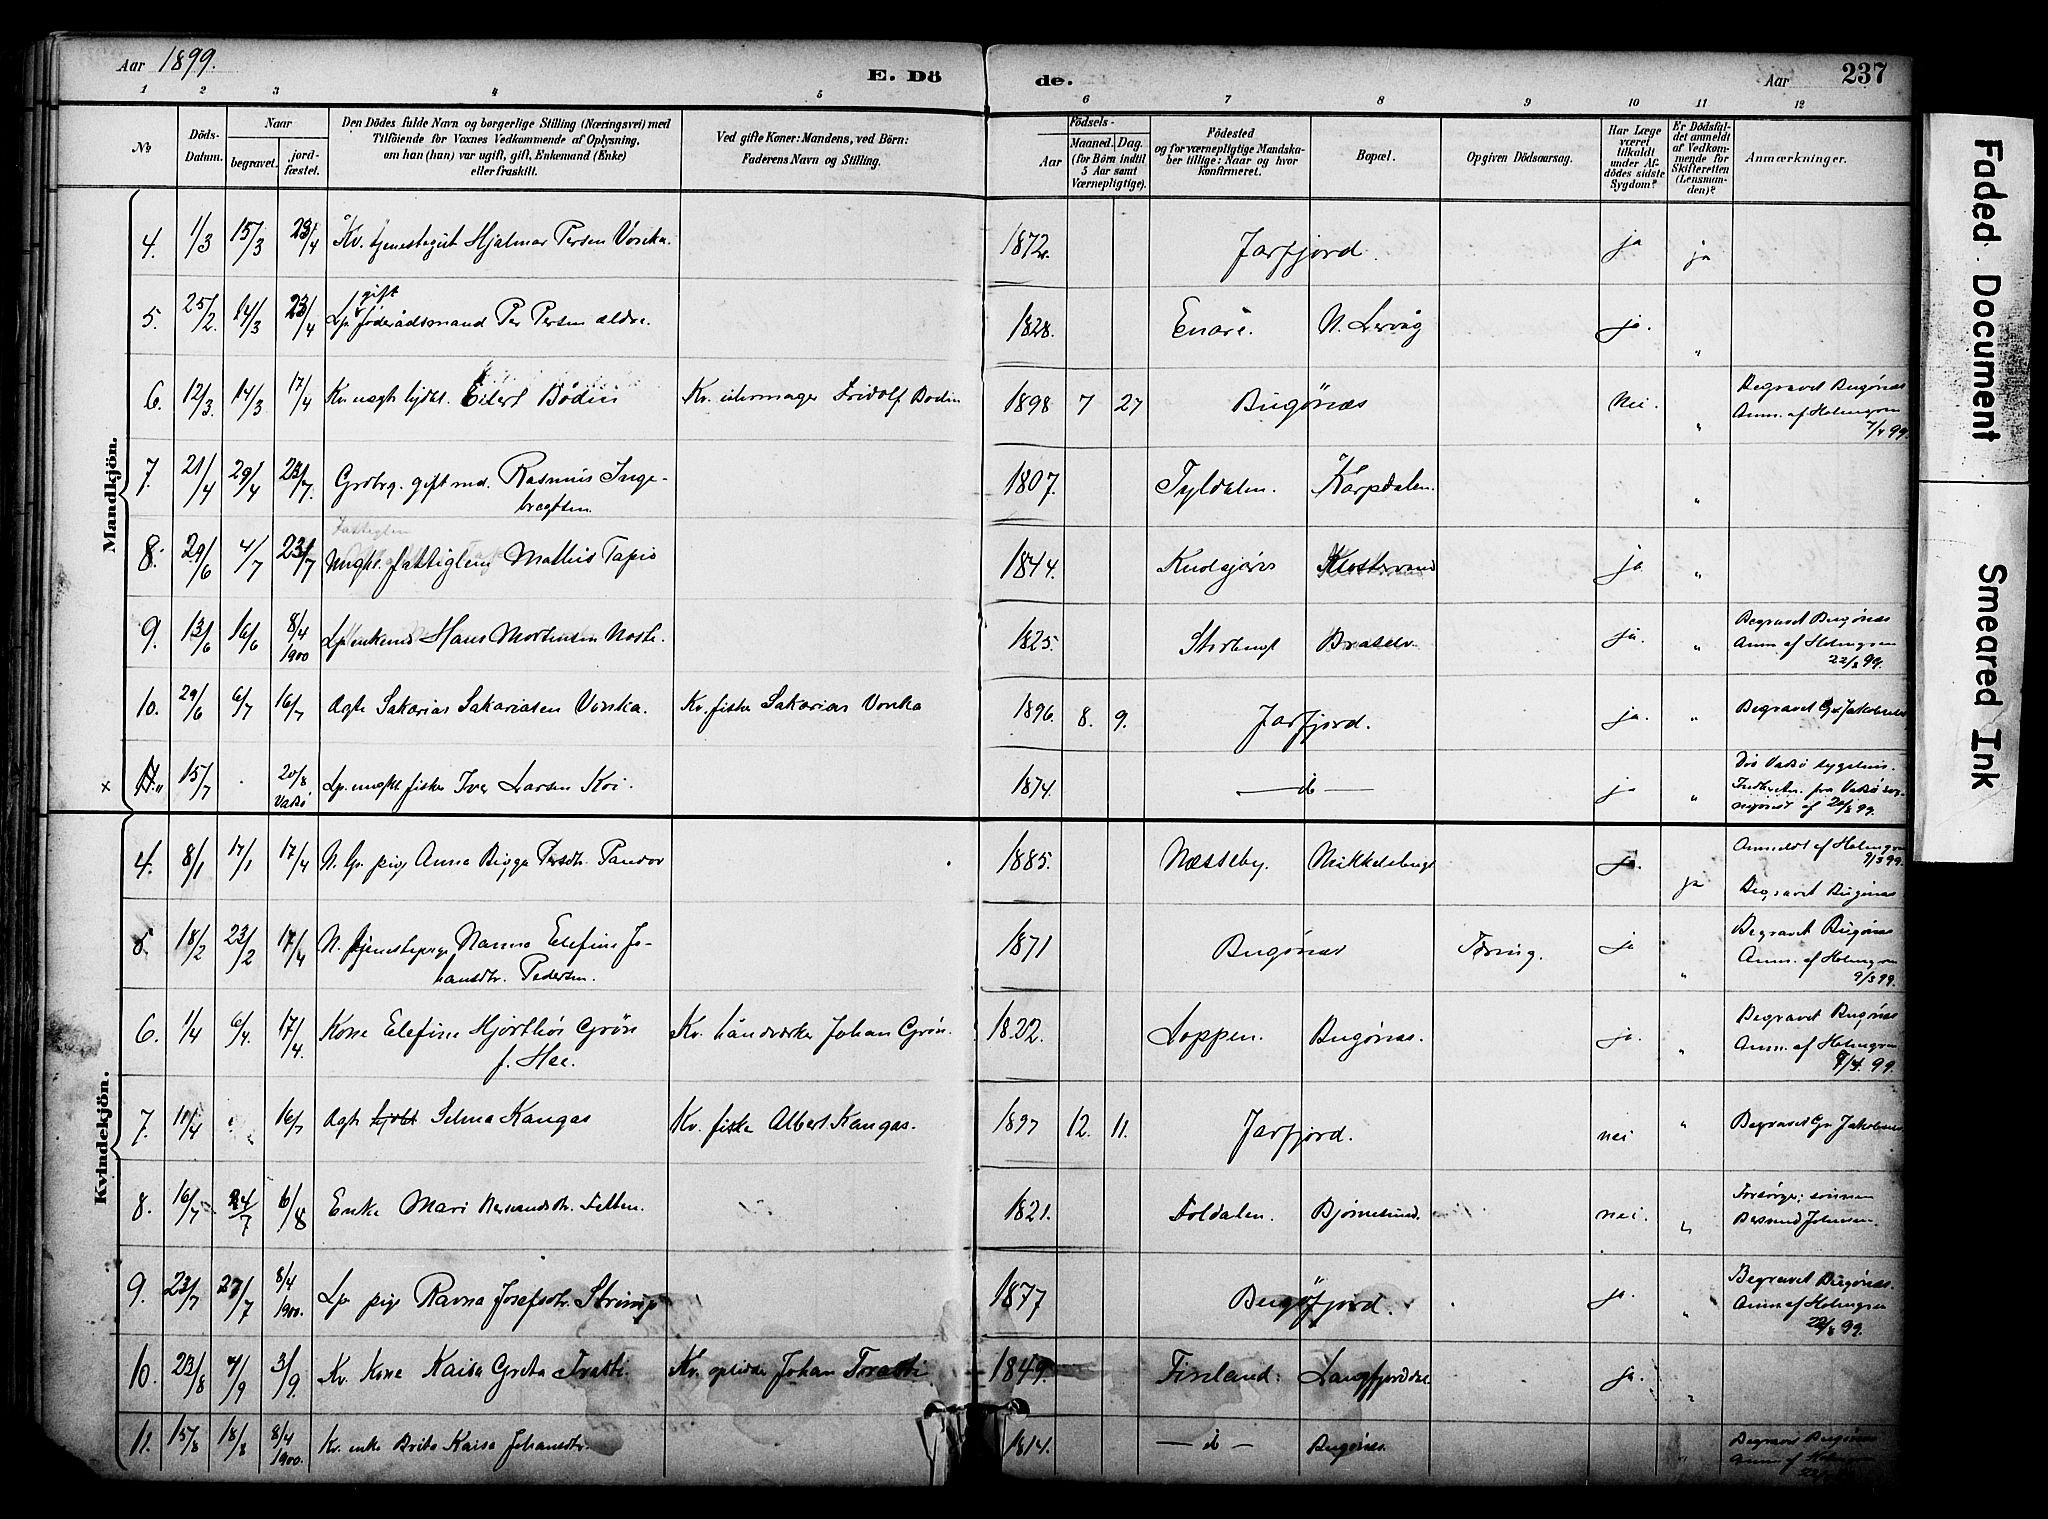 Aar 1899.
E. Dö
de.
Aar
237
1 2 3 4 5 6 7 8 9 10 11 12
No
Döds-Datum.
Naar
begravet.
jord-fæstet.
Den Dödes fulde Navn og borgerlige Stilling (Næringsvei) med
Tilföiende for Voxnes Vedkommende af Oplysning,
om han (hun) var ugift, gift, Enkemand (Enke)
eller fraskilt.
Ved gifte Koner: Mandens, ved Börn:
Faderens Navn og Stilling.
Födsels-
Aar
Maaned. Dag.
(for Börn indtil
5 Aar samt
Værnepligtige).
Födested
og for værnepligtige Mandska-
ber tillige: Naar og hvor
konfirmeret.
Bopæl.
Opgiven Dödsaarsag.
Har Læge
været
tilkaldt
under Af-
dödes sidste
Sygdom?
Er Dödsfal-
det anmeldt
af Vedkom-
mende for
Skifteretten
(Lensman-
den)?
Anmærkninger.
Mandkjön.
4. 1/3 15/3 23/4 Kv. tjenestegut Hjalmar Persen Vonka. 1872. Jarfjord. ja ja
5. 25/2. 14/3 23/4 Lp. gift föderådsmand Per Persen ældre. 1828. Enare. N. Lervåg ja. "
6. 12/3. 14/3 17/4 Kv. Eilert Bodin Kv. Fridolf Bodin 1898 7 27 Bugönæs Nei. " Begravet Bugönæs
Anm. af Holmgren
7/4 99.
7. 21/4 29/4 23/7. Grdbrg. gift md. Rasmus Inge-
bregtsen. 1807. Tyldalen. Karpdalen. "
8. 29/6 4/7 23/7 Fattiglem Mathis Tapio 1844. Klostervand ja "
9. 13/6 16/6 8/4 1900 Lp. enkemd Hans Mortensen Noste. 1825. Storbugt ja. " Begravet Bugönæs
Anm. af Holmgren
22/8 99.
10. 29/6 6/7 16/7 Ægte Sakarias Sakariasen Vonka. Kv. fisker Sakarias Vonka 1896 8. 9. Jarfjord. ja. " Begravet Gr. Jakobselv
x 11. 15/7 . 20/8 Vadsö Lp. fisker Iver Larsen Koi. 1874. — d — ja " Död Vadsö sygehus.
fra Vadsö
af 20/8 99.
Kvindekjön.
4. 8/1 17/1 17/4 N. pige Anna Birgga Persdtr. Pandor 1885. Næsseby. Mikkelsbugt ja. ja Anmeldt af Holmgren
9/3 99.
Begravet Bugönæs
5. 18/2 23/2 17/4 N. tjenestepige Nanna Elefine Jo-
hansdtr. Pedersen. 1871 Bugönæs Tæring. ja " Begravet Bugönæs
Anm. af Holmgren
9/3 99.
6. 1/4 6/4. 17/4. Kone Elefine Hjorthöi Grön
f. Hee. Kv. håndværker Johan Grön. 1822. Loppen. Bugönæs. ja. " Begravet Bugönæs
Anm. af Holmgren
99.
7. 11/4 16/7 Ægte Selma Kangas Kv. fisker Albert Kangas. 1897 12. 11. Jarfjord. nei " Begravet Gr. Jakobselv
8. 16/7 24/7 6/8 Enke Mari 1821. Foldalen. Björnesund. nei. " Forsörger; sönnen
Johnsen.
9. 23/7 27/7 8/4 1900. Lp. pige Ravna Josefsdtr. 1877 Bugöfjord. ja. " Begravet Bugönæs.
Anm af Holmgren
22/8 99.
10. 23/8 4/9 3/9. Kv. Kone Kaisa Greta Kv. Johan 1849. Finland. ja. "
11. 15/8 18/8 8/4 1900. Kv. enke Brita Kaisa Johansdtr. 1814. — d — Bugönæs. " Begravet Bugönæs
Anm af Holmgren
Faded Document
Smeared Ink